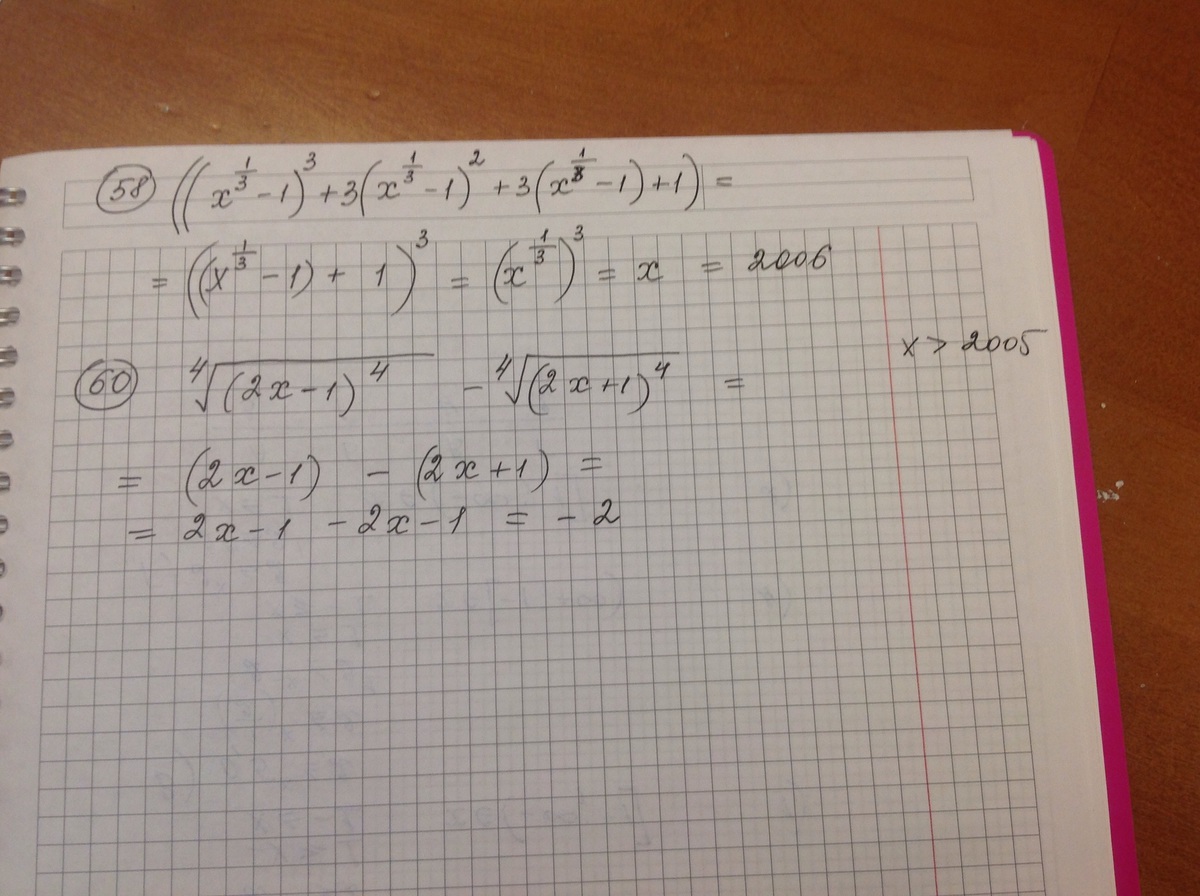 58 ((x^{1/3} - 1)^3 + 3(x^{1/3} - 1)^2 + 3(x^{1/3} - 1) + 1) =
= ((x^{1/3} - 1) + 1)^3 = (x^{1/3})^3 = x = 2006
x > 2005
60 ∜((2x - 1)^4) - ∜((2x + 1)^4) =
= (2x - 1) - (2x + 1) =
= 2x - 1 - 2x - 1 = - 2